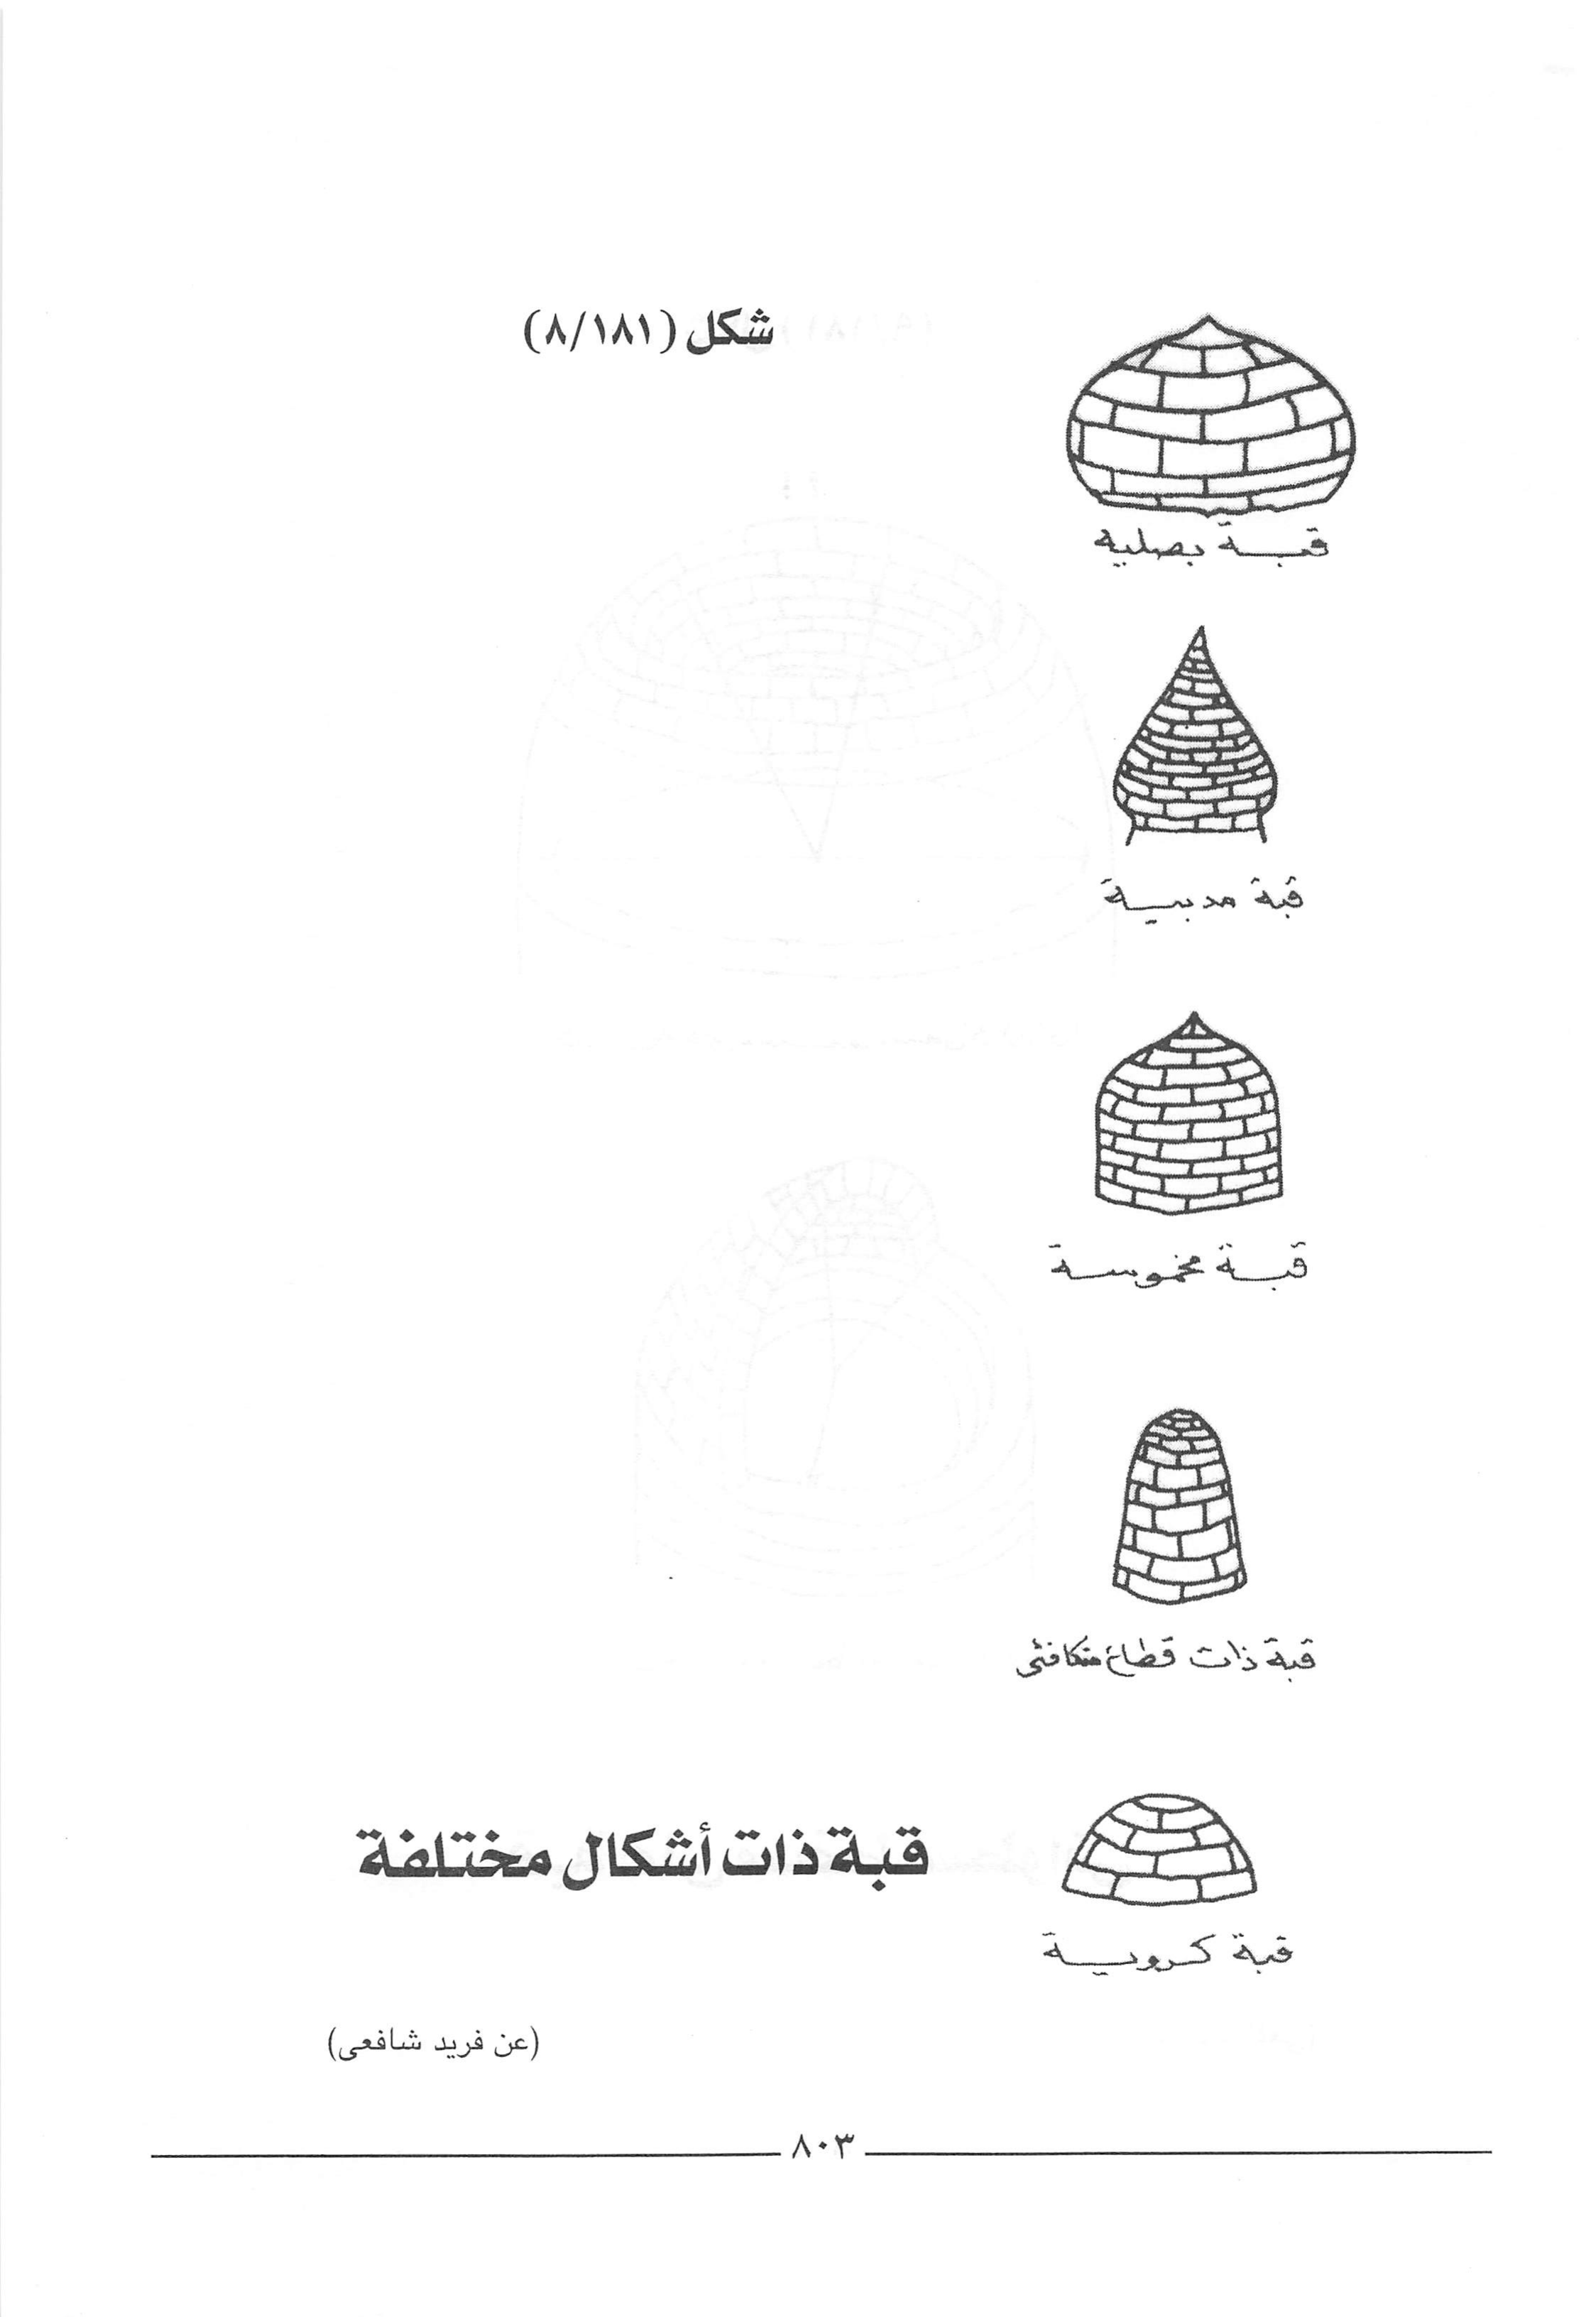 شكل (٨/١٨١)
قبة بصليه
قبة مدببية
قبة مخموسة
قبة ذات قطاع متكافئى
قبة كروية
قبة ذات أشكال مختلفة
(عن فريد شافعى)
٨٠٣